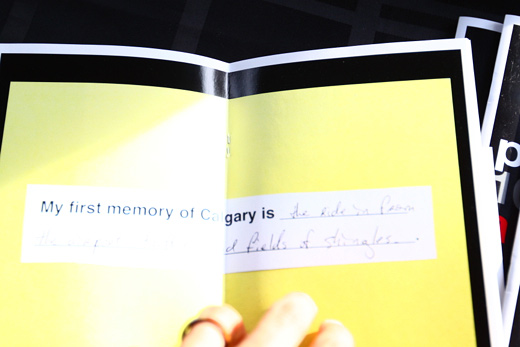 My first memory of Calgary is the ride in from
the airport fields of shingles.
p